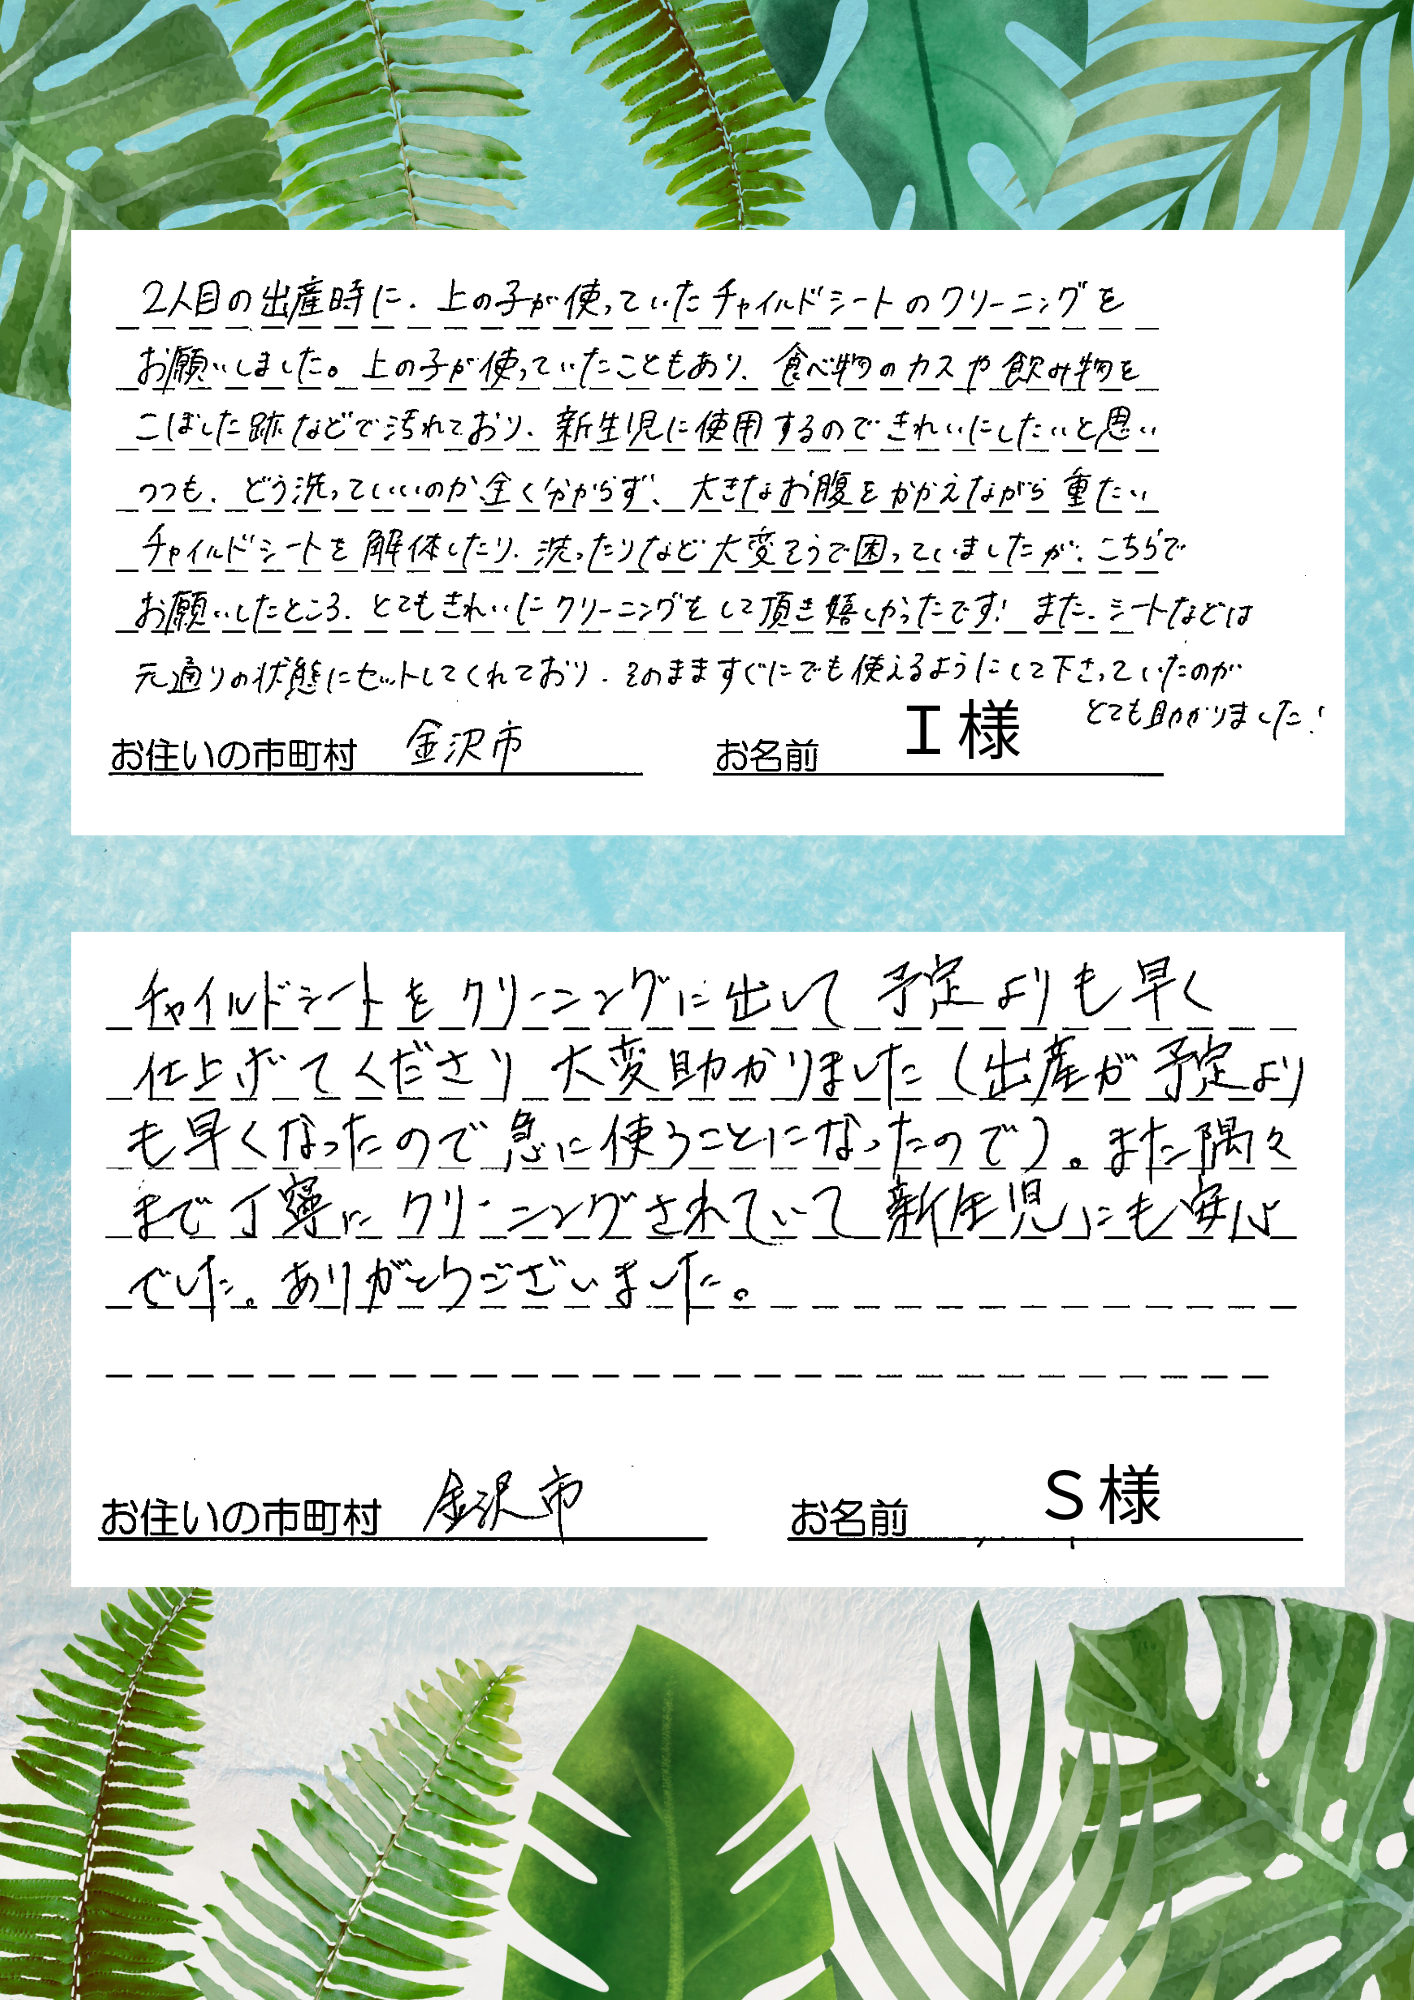 2人目の出産時に、上の子が使っていたチャイルドシートのクリーニングを
お願いしました。上の子が使っていたこともあり、食べ物のカスや飲み物を
こぼした跡などで汚れており、新生児に使用するのできれいにしたいと思い
つつも、どう洗っていいのか全く分からず、大きなお腹をかかえながら重たい
チャイルドシートを解体したり、洗ったりなど大変そうで困っていましたが、こちらで
お願いしたところ、とてもきれいにクリーニングをして頂き嬉しかったです! また、シートなどは
元通りの状態にセットしてくれており、そのまますぐにでも使えるようにして下さっていたのが
とても助かりました!
お住いの市町村 金沢市 お名前 I様
チャイルドシートをクリーニングに出して 予定よりも早く
仕上げてくださり 大変助かりました(出産が予定より
も早くなったので急に使うことになったので)。また隅々
まで丁寧にクリーニングされていて 新生児にも安心
でした。ありがとうございました。
お住いの市町村 金沢市 お名前 S様